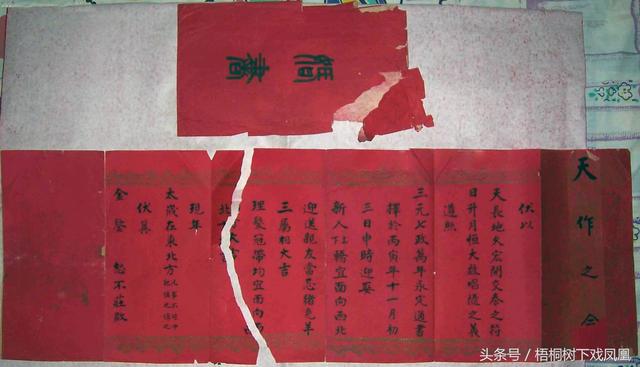 簡書
天作之合
伏以
天長地久宏開交泰之符
日升月恒大啟唱隨之義
遵照
三元七政萬年永定通書
擇於丙寅年十一月初
三日申時迎娶
新人下轎宜面向西北
迎送親友當忌猪兔羊
三屬相大吉
理髮冠帶均宜面向西
北
現年
太歲在東北方 人事不可冲
犯慎之慎之
伏冀
金鑒 恕不莊啟
头条号 / 梧桐树下戏凤凰